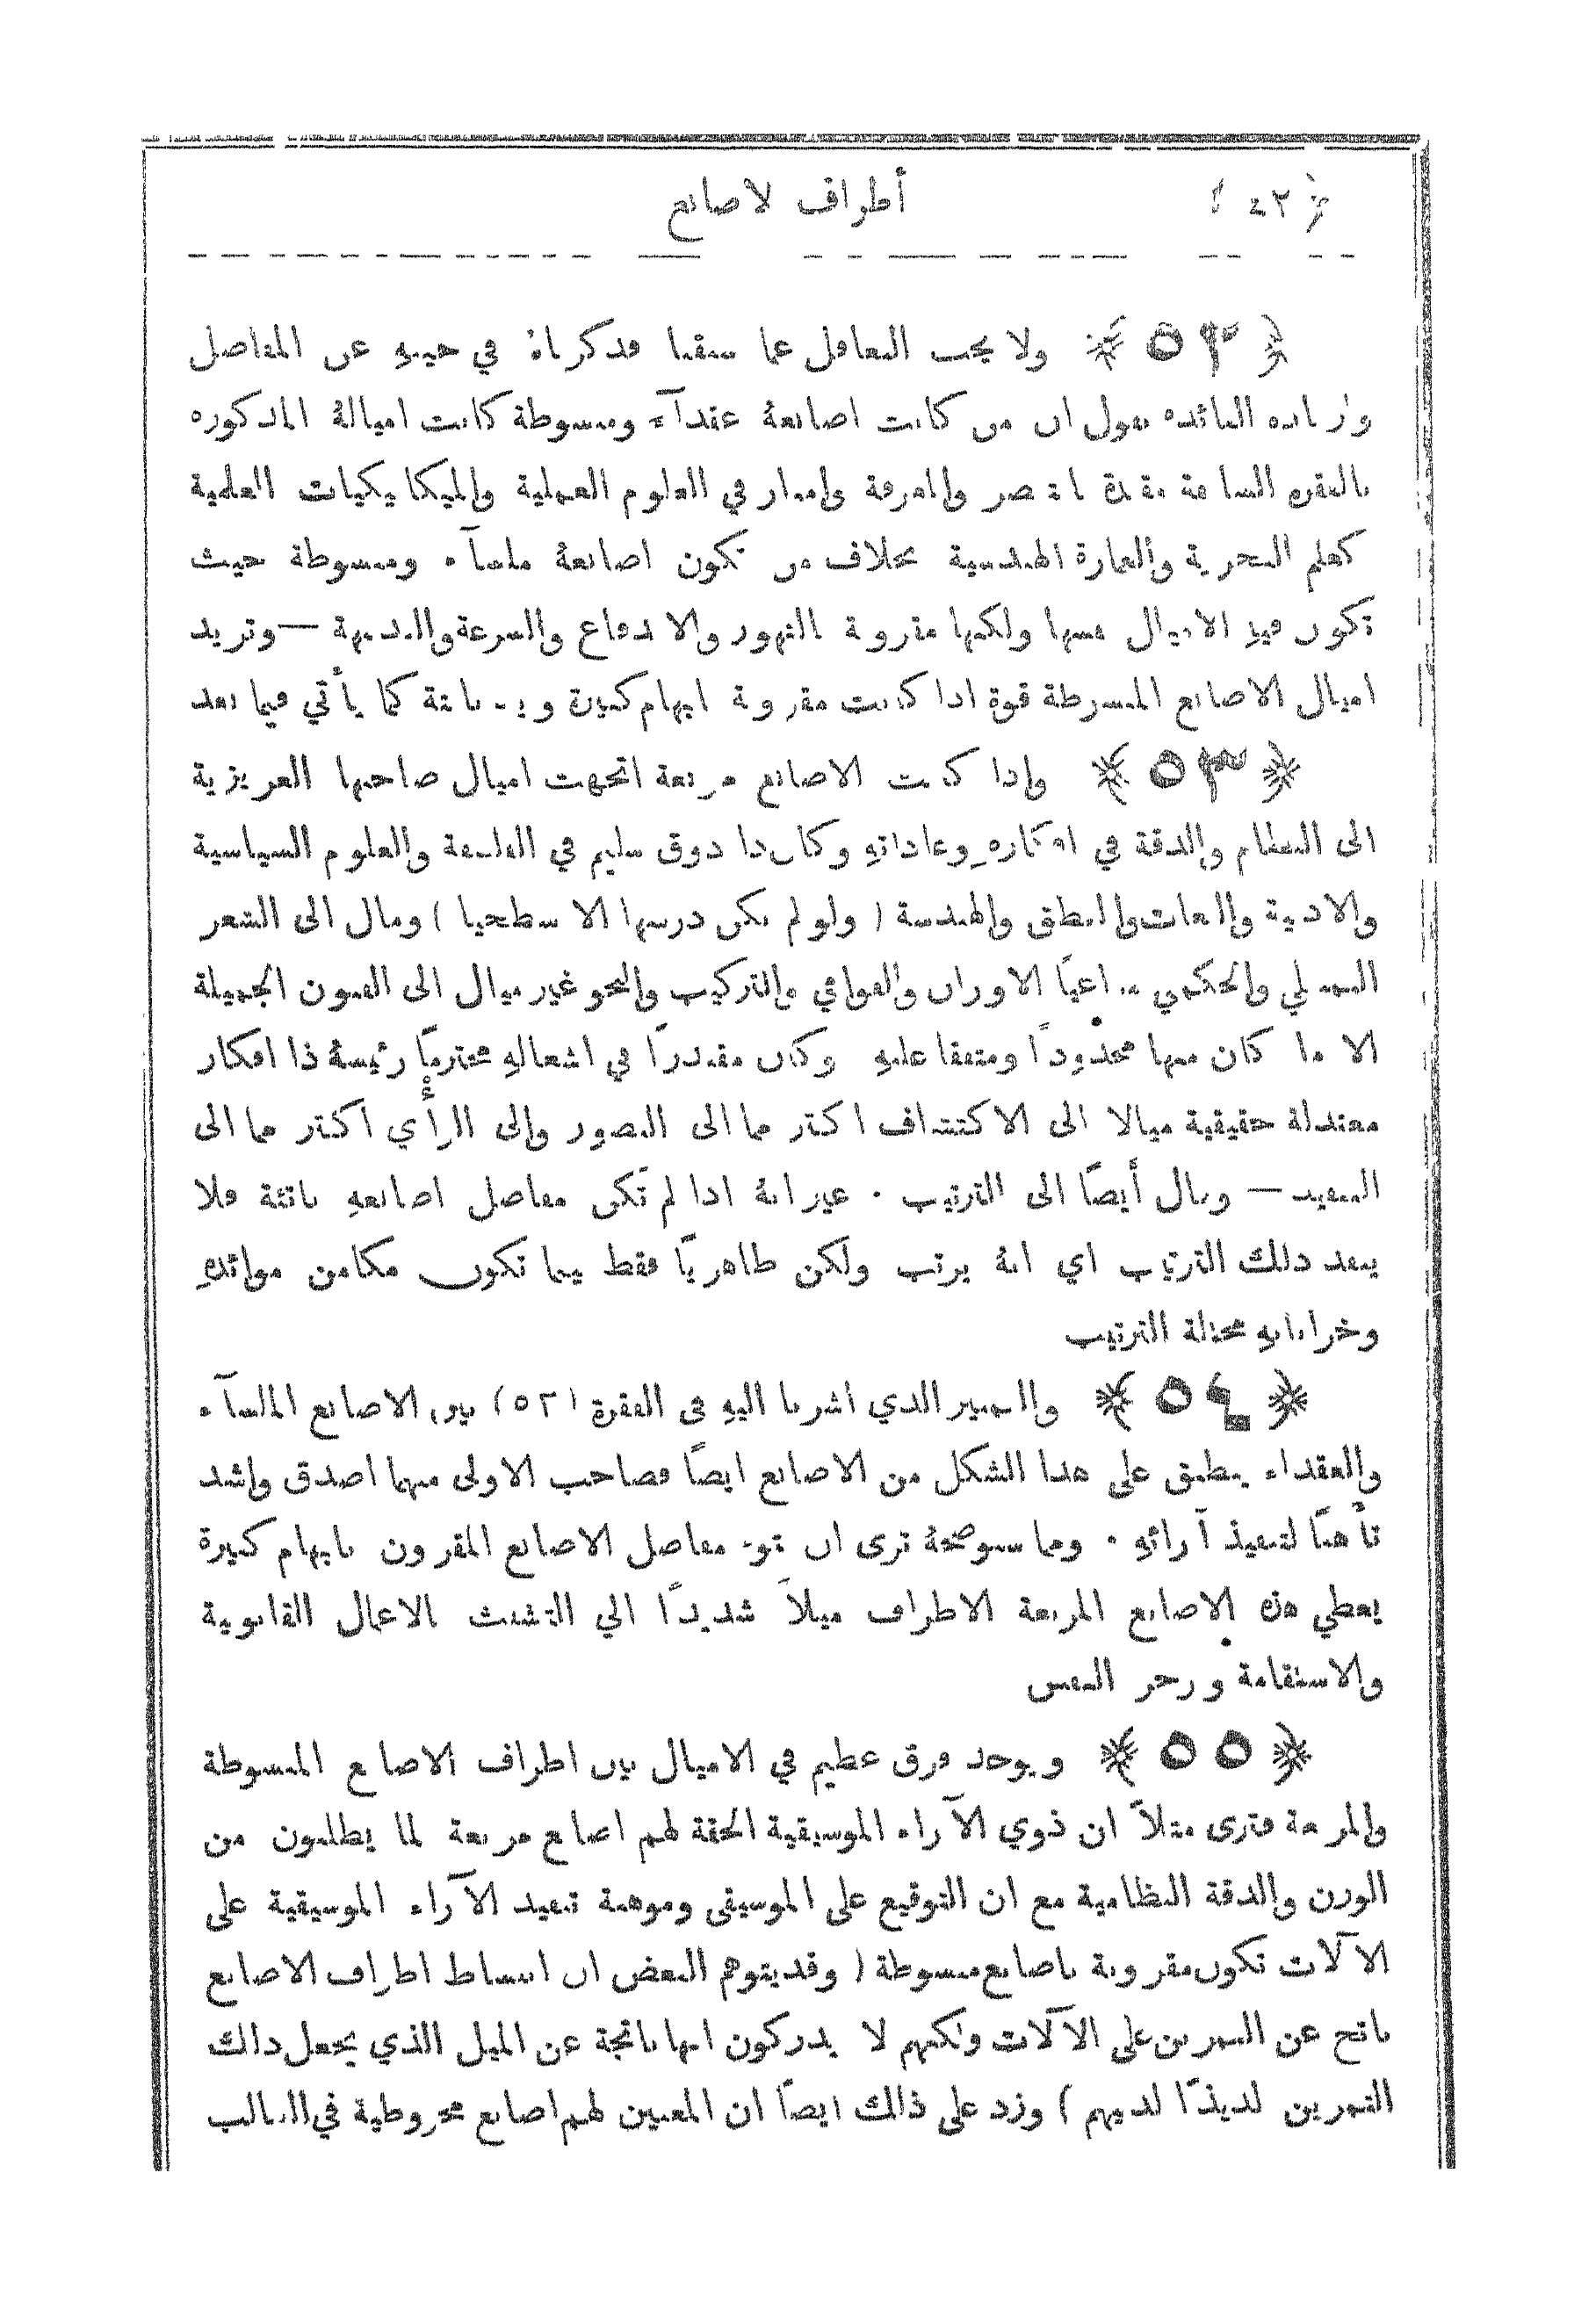 ﴿ ٤٢ ﴾ أطراف الاصابع
﴿ ٥٢ ﴾ ولا يجب التغافل عما سبقنا فذكرناهُ في حينهِ عن المفاصل
وزيادة للفائدة نقول ان من كانت اصابعهُ عقدآء ومبسوطة كانت امياله المذكورة
بالفقرة السابقة مقيدة بالتصبر والمعرفة وامتاز في العلوم العملية والميكانيكيات العلمية
كعلم البحرية والعمارة الهندسية بخلاف من تكون اصابعهُ ملسآء ومبسوطة حيث
تكون فيهِ الاميال نفسها ولكنها مقرونة بالتهور والاندفاع والسرعة والبديهة — وتزيد
اميال الاصابع المبسوطة قوة اذا كانت مقرونة بابهام كبيرة كما يأتي فيما بعد
﴿ ٥٣ ﴾ واذا كانت الاصابع مربعة اتجهت اميال صاحبها الغريزية
الى النظام والدقة في افكارهِ وعاداتهِ وكان ذا ذوق سليم في الفلسفة والعلوم السياسية
والادبية واللغات والمنطق والهندسة ( ولو لم يكن درسها الا سطحيا ) ومال الى الشعر
التمثيلي والحكمي مراعيًا الاوزان والقوافي والتركيب والنحو غير ميال الى الفنون الجميلة
الا ما كان منها محدودًا ومتفقا عليهِ وكان مقتدرًا في اشغالهِ محترمًا رئيسهُ ذا افكار
معتدلة حقيقية ميالا الى الاكتشاف اكثر مما الى التصور والى الرأي اكثر مما الى
التنفيذ — ومال أيضًا الى الترتيب . غير انهُ اذا لم تكن مفاصل اصابعهِ ناتئة فلا
يتعد ذلك الترتيب اي انهُ يرتب ولكن ظاهريًا فقط بينما تكون مكامن موائدهِ
وخزاناتهِ مختلة الترتيب
﴿ ٥٤ ﴾ والتمييز الذي اشرنا اليهِ في الفقرة ( ٥٢ ) بين الاصابع الملسآء
والعقداء ينطبق على هذا الشكل من الاصابع ايضًا فصاحب الاولى منهما اصدق واشد
تأهبًا لتنفيذ آرائهِ . ومما سنوضحهُ ترى ان نتوء مفاصل الاصابع المقرون بابهام كبيرة
يعطي هذه الاصابع المربعة الاطراف ميلاً شديدًا الي التشبث بالاعمال القانونية
والاستقامة وزجر النفس
﴿ ٥٥ ﴾ ويوجد فرق عظيم في الاميال بين اطراف الاصابع المبسوطة
والمربعة فترى مثلاً ان ذوي الآراء الموسيقية الحقة لهم اصابع مربعة لما يطلبون من
الوزن والدقة النظامية مع ان التوقيع على الموسيقى وموهبة تنفيذ الآراء الموسيقية على
الآلات تكون مقرونة باصابع مبسوطة ( وقد يتوهم البعض ان انبساط اطراف الاصابع
ناتج عن التمرين على الآلات ولكنهم لا يدركون انها ناتجة عن الميل الذي يجعل ذلك
التمرين لذيذًا لديهم ) وزد على ذالك ايضًا ان المغنين لهم اصابع مخروطية في الغالب